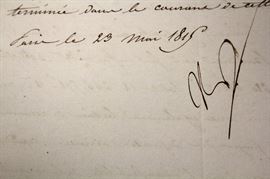 terminée dans le courant de cette
Paris le 23 Mai 1815